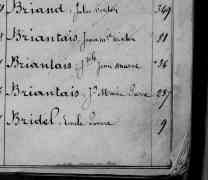 Briand, Jules Victor 349
Briantais, Jean Mie Victor 81
Briantais, Jph 36
Briantais, Jh Marie Pierre 237
Bridel, Emile Pierre 9